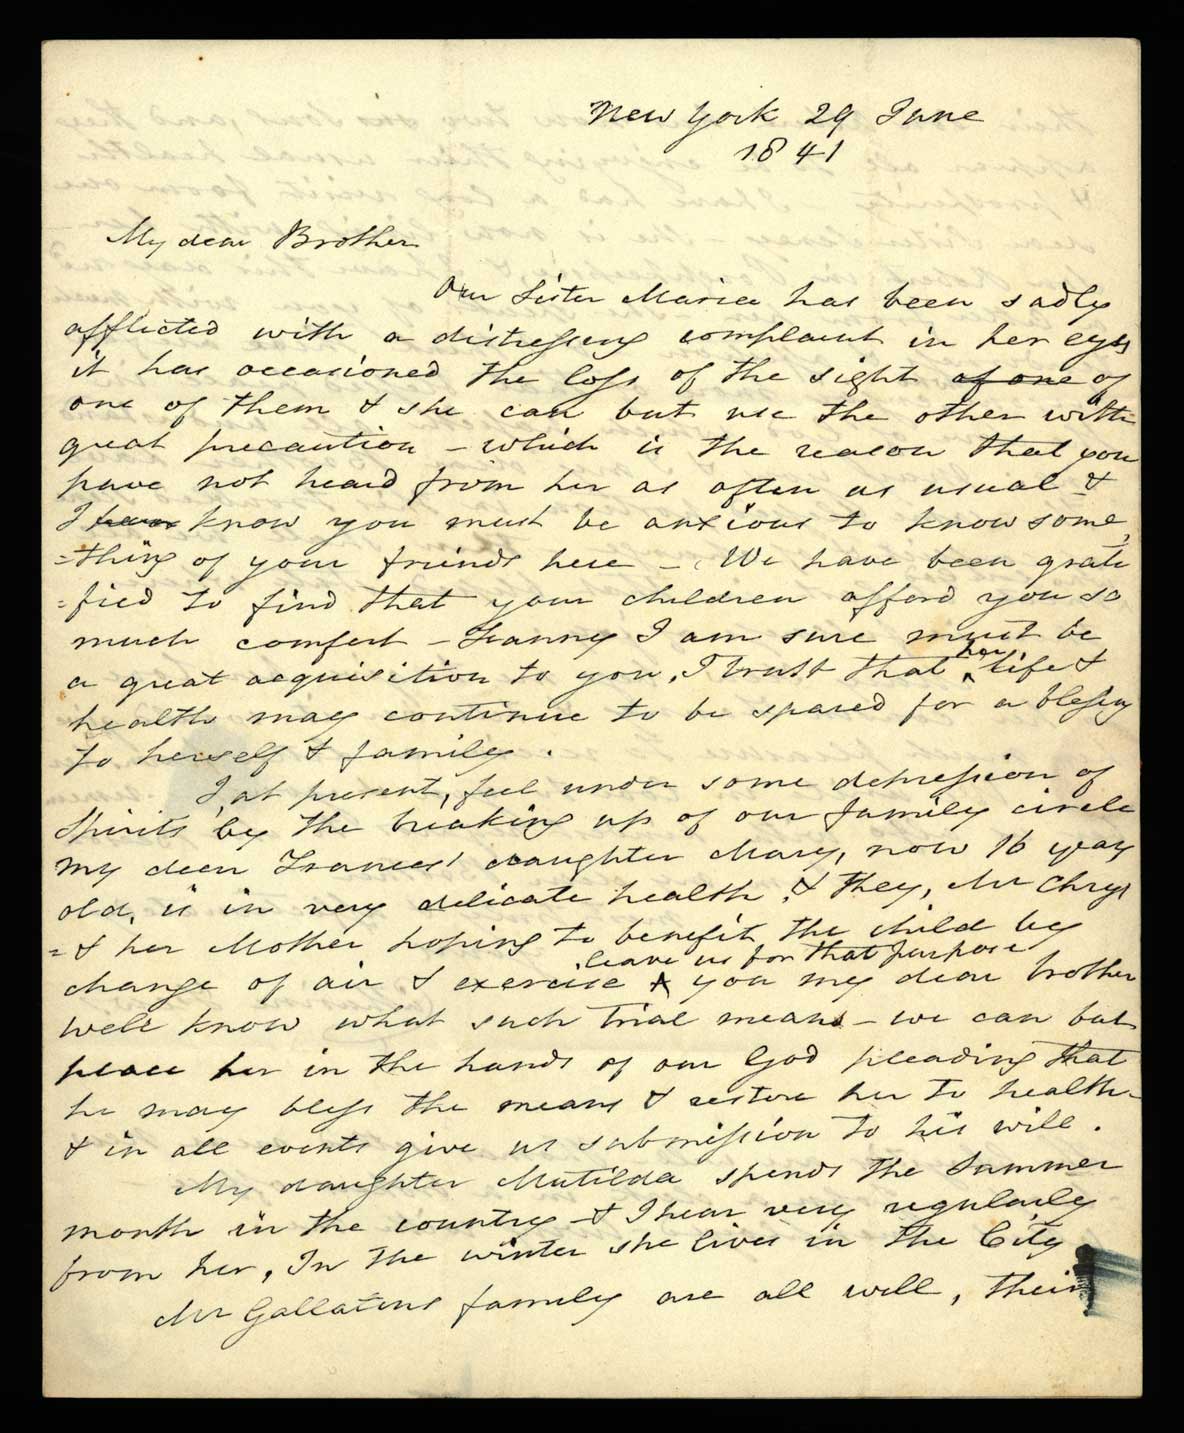 New York 29 June
1841
My dear Brother
Our Sister Maria has been sadly
afflicted with a distressing complaint in her eyes
it has occasioned the loss of the sight of one of
one of them & she can but use the other with
great precaution – which is the reason that you
have not heard from her as often as usual &
I have know you must be anxious to know some
=thing of your friends here – We have been grati
=fied to find that your children afford you so
much comfort – Fanny I am sure must be
a great acquisition to you, I trust that her life &
health may continue to be spared for a blessing
to herself & family.
I, at present, feel under some depression of
Spirits by the breaking up of our family circle
my dear Frances' daughter Mary, now 16 years
old, is in very delicate health, & they, Mr Chrys
=& her Mother hoping to benefit the child by
leave us for that purpose
change of air & exercise you my dear brother
well know what such trial means – we can but
place her in the hands of our God pleading that
he may bless the means & restore her to health –
& in all events give us submission to his will.
My daughter Matilda spends the Summer
month in the country – & I hear very regularly
from her, In the winter she lives in the City
Mr Gallatins family are all well, their